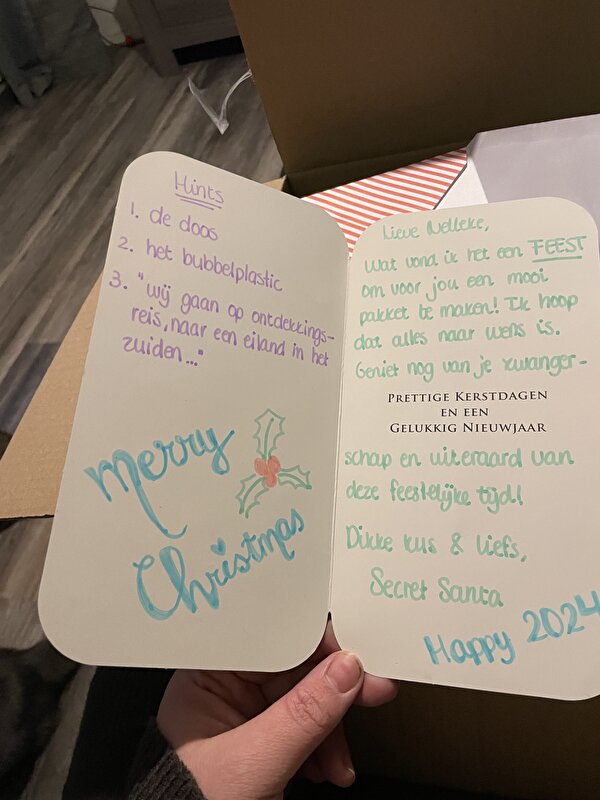 Hints
1. de doos
2. het bubbelplastic
3. "wij gaan op ontdekkings-
reis, naar een eiland in het
zuiden..."
Merry
Christmas
Lieve Nelleke,
Wat vond ik het een FEEST
om voor jou een mooi
pakket te maken! Ik hoop
dat alles naar wens is.
Geniet nog van je zwanger-
PRETTIGE KERSTDAGEN
EN EEN
GELUKKIG NIEUWJAAR
schap en uiteraard van
deze feestelijke tijd!
Dikke kus & liefs,
Secret Santa
Happy 2024